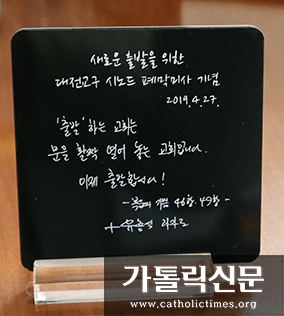 새로운 출발을 위한
대전교구 시노드 폐막미사 기념
2019.4.27.
'출발'하는 교회는
문을 활짝 열어 놓는 교회입니다.
이제 출발합시다!
- 복음의 기쁨 46항.49항 -
+유흥식 라자로
가톨릭신문
www.catholictimes.org